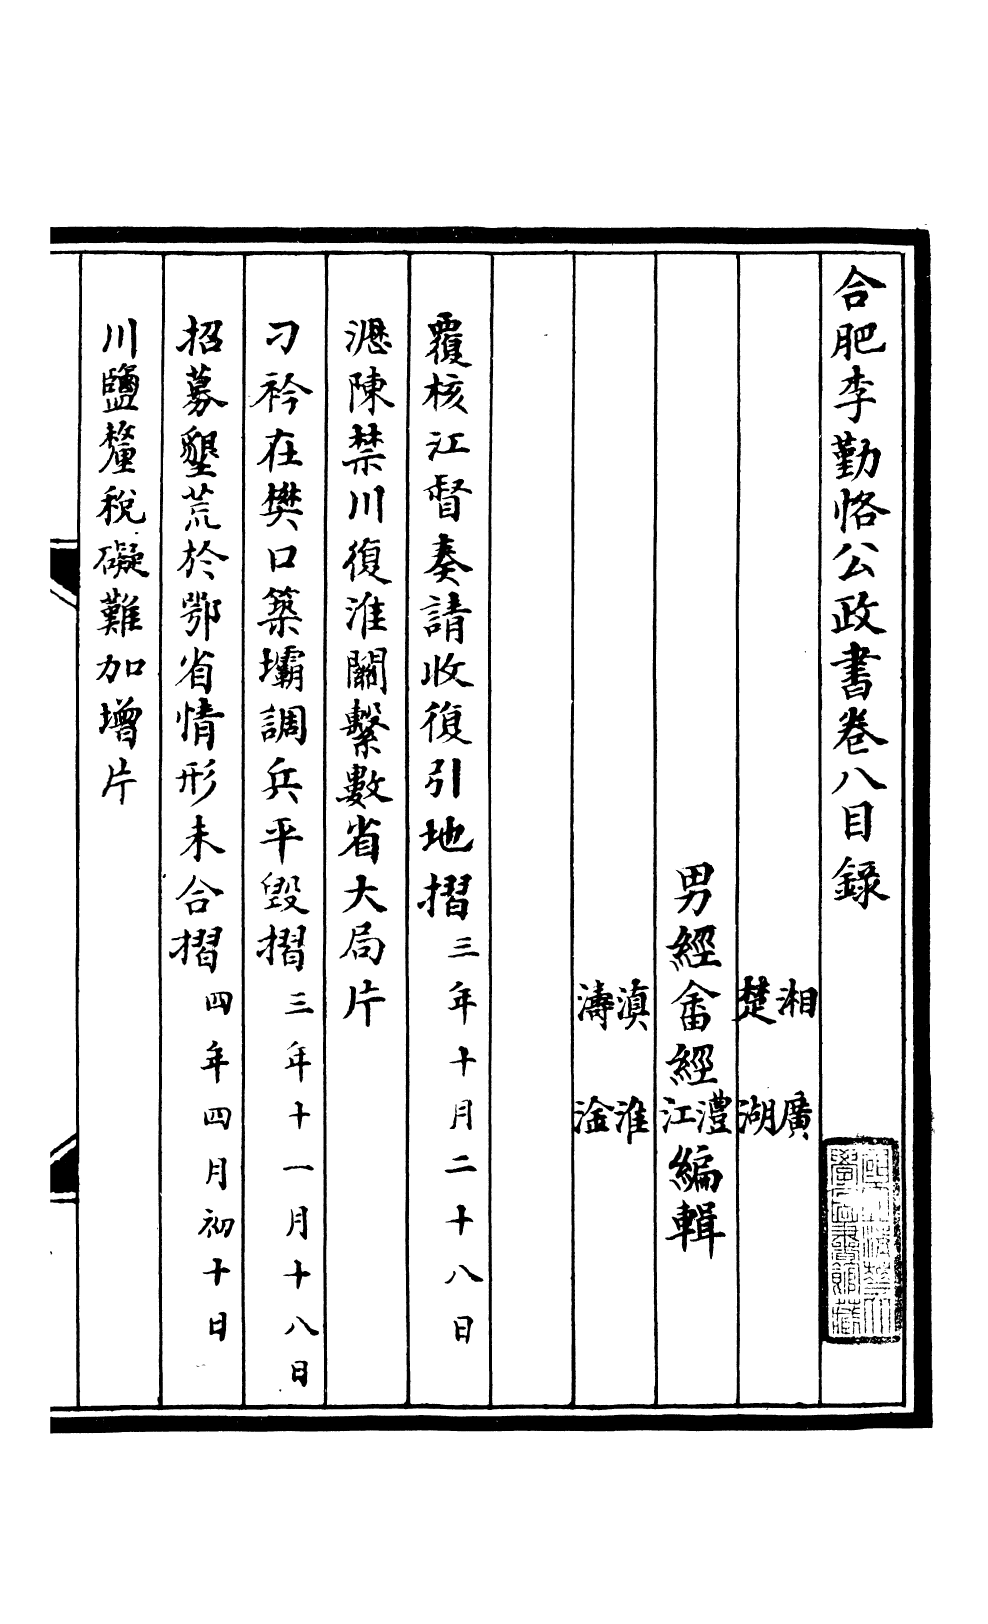 合肥李勤恪公政書卷八目錄
湘 廣
楚 湖
男經畬經澧江編輯
滇 淮
濤 淦
覆核江督奏請收復引地摺三年十月二十八日
瀝陳禁川復淮關繫數省大局片
刁衿在樊口築壩調兵平毀摺三年十一月十八日
招募墾荒於鄂省情形未合摺四年四月初十日
川鹽釐稅礙難加增片
國立清華大
學圖書館藏